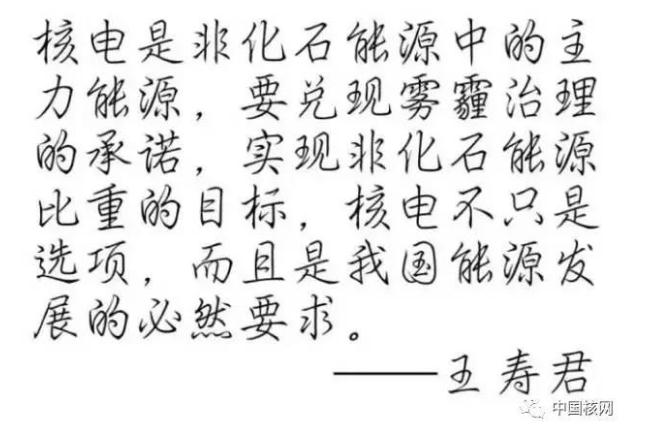 核电是非化石能源中的主
力能源，要兑现雾霾治理
的承诺，实现非化石能源
比重的目标，核电不只是
选项，而且是我国能源发
展的必然要求。
——王寿君
中国核网